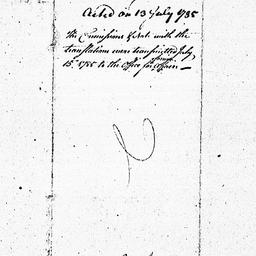 Acted on 13 July 1785
the Commissions & Acts with the
translations were transmitted July
15th 1785 to the Office for foreign
Affairs —